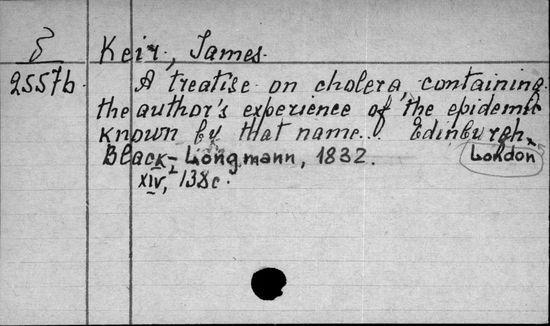 δ Keir, James.
2557b. A treatise on cholera, containing
the author's experience of the epidemic
known by that name. Edinburgh,
Black-Longmann, 1832. London
XIV, 138c.